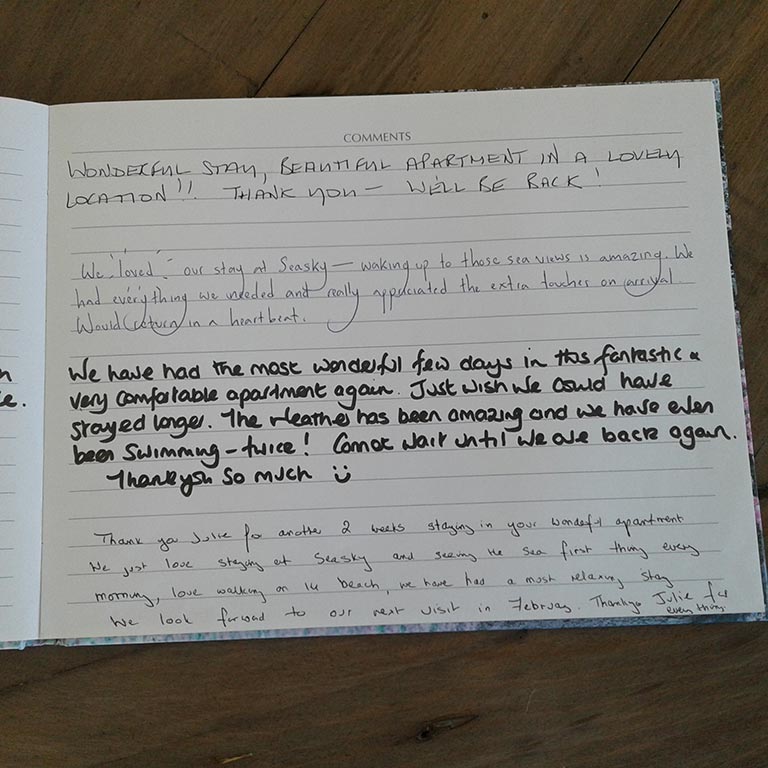 COMMENTS
WONDERFUL STAY, BEAUTIFUL APARTMENT IN A LOVELY
LOCATION!! THANK YOU — WE'LL BE BACK!
We "loved" our stay at Seasky — waking up to those sea views is amazing. We
had everything we needed and really appreciated the extra touches on arrival.
Would return in a heartbeat.
We have had the most wonderful few days in this fantastic &
very comfortable apartment again. Just wish we could have
stayed longer. The Weather has been amazing and we have even
been swimming - twice! Cannot wait until we are back again.
Thankyou so much ☺
Thank you Julie for another 2 weeks staying in your wonderful apartment
We just love staying at Seasky and seeing the sea first thing every
morning, love walking on the beach, we have had a most relaxing stay
We look forward to our next visit in February. Thankyou Julie for
everything